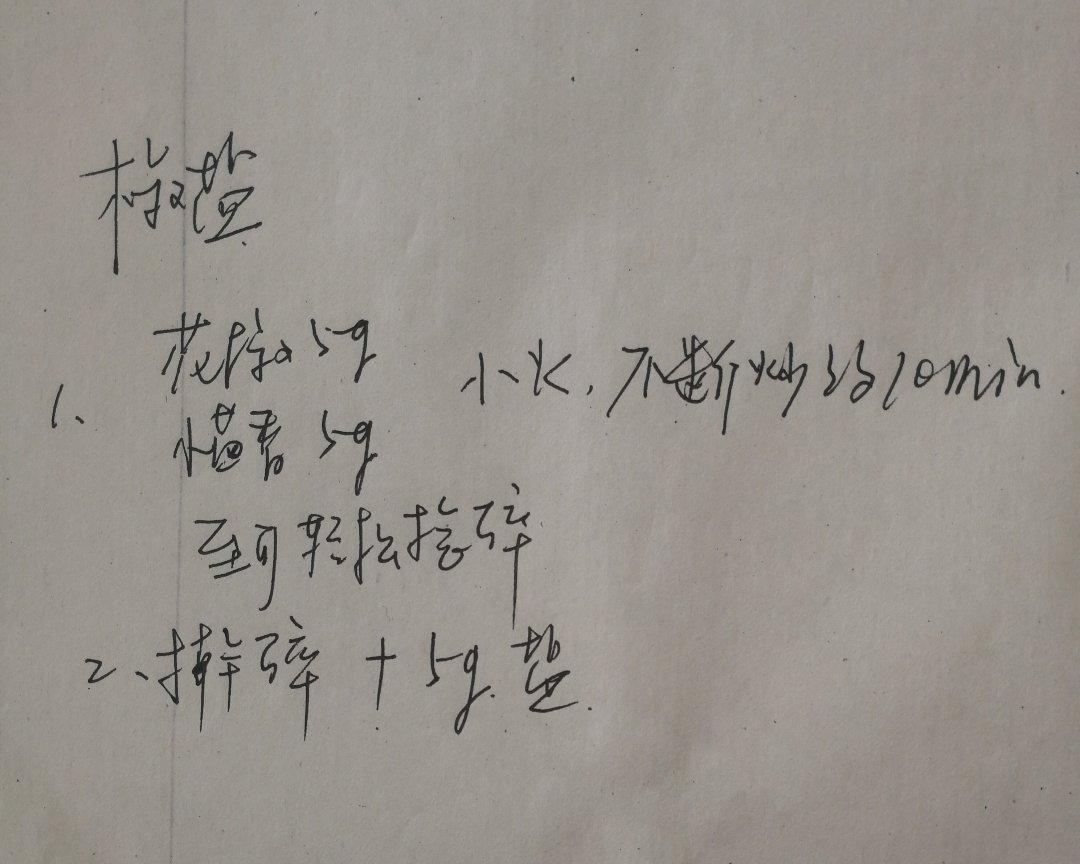 椒盐
1、花椒 5g 小火,不断炒约10min.
小茴香 5g
至可轻松捻碎
2、擀碎 + 5g 盐.